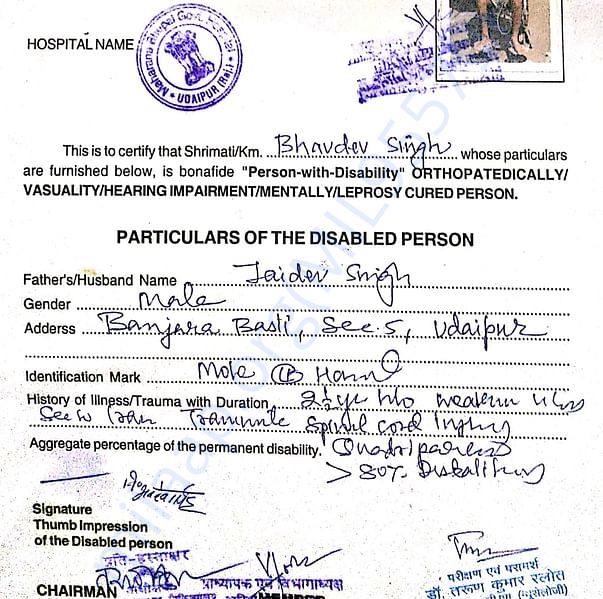 HOSPITAL NAME
UDAIPUR (Raj.)
This is to certify that Shrimati/Km. Bhavdev Singh whose particulars
are furnished below, is bonafide "Person-with-Disability" ORTHOPATEDICALLY/
VASUALITY/HEARING IMPAIRMENT/MENTALLY/LEPROSY CURED PERSON.
PARTICULARS OF THE DISABLED PERSON
Father's/Husband Name Jaidev Singh
Gender Male
Adderss Banjara Basti, Sec 5, Udaipur
Identification Mark Mole Hand
History of Illness/Trauma with Duration H/o weakness
Traumatic Spinal cord Injury
Aggregate percentage of the permanent disability. Quadriparesis
> 80% Disability
Signature
Thumb Impression
of the Disabled person
प्रति-हस्ताक्षर
CHAIRMAN प्राध्यापक एवं विभागाध्यक्ष
MEMBER
परीक्षण एवं परामर्श
डॉ. तरूण कुमार रलोत